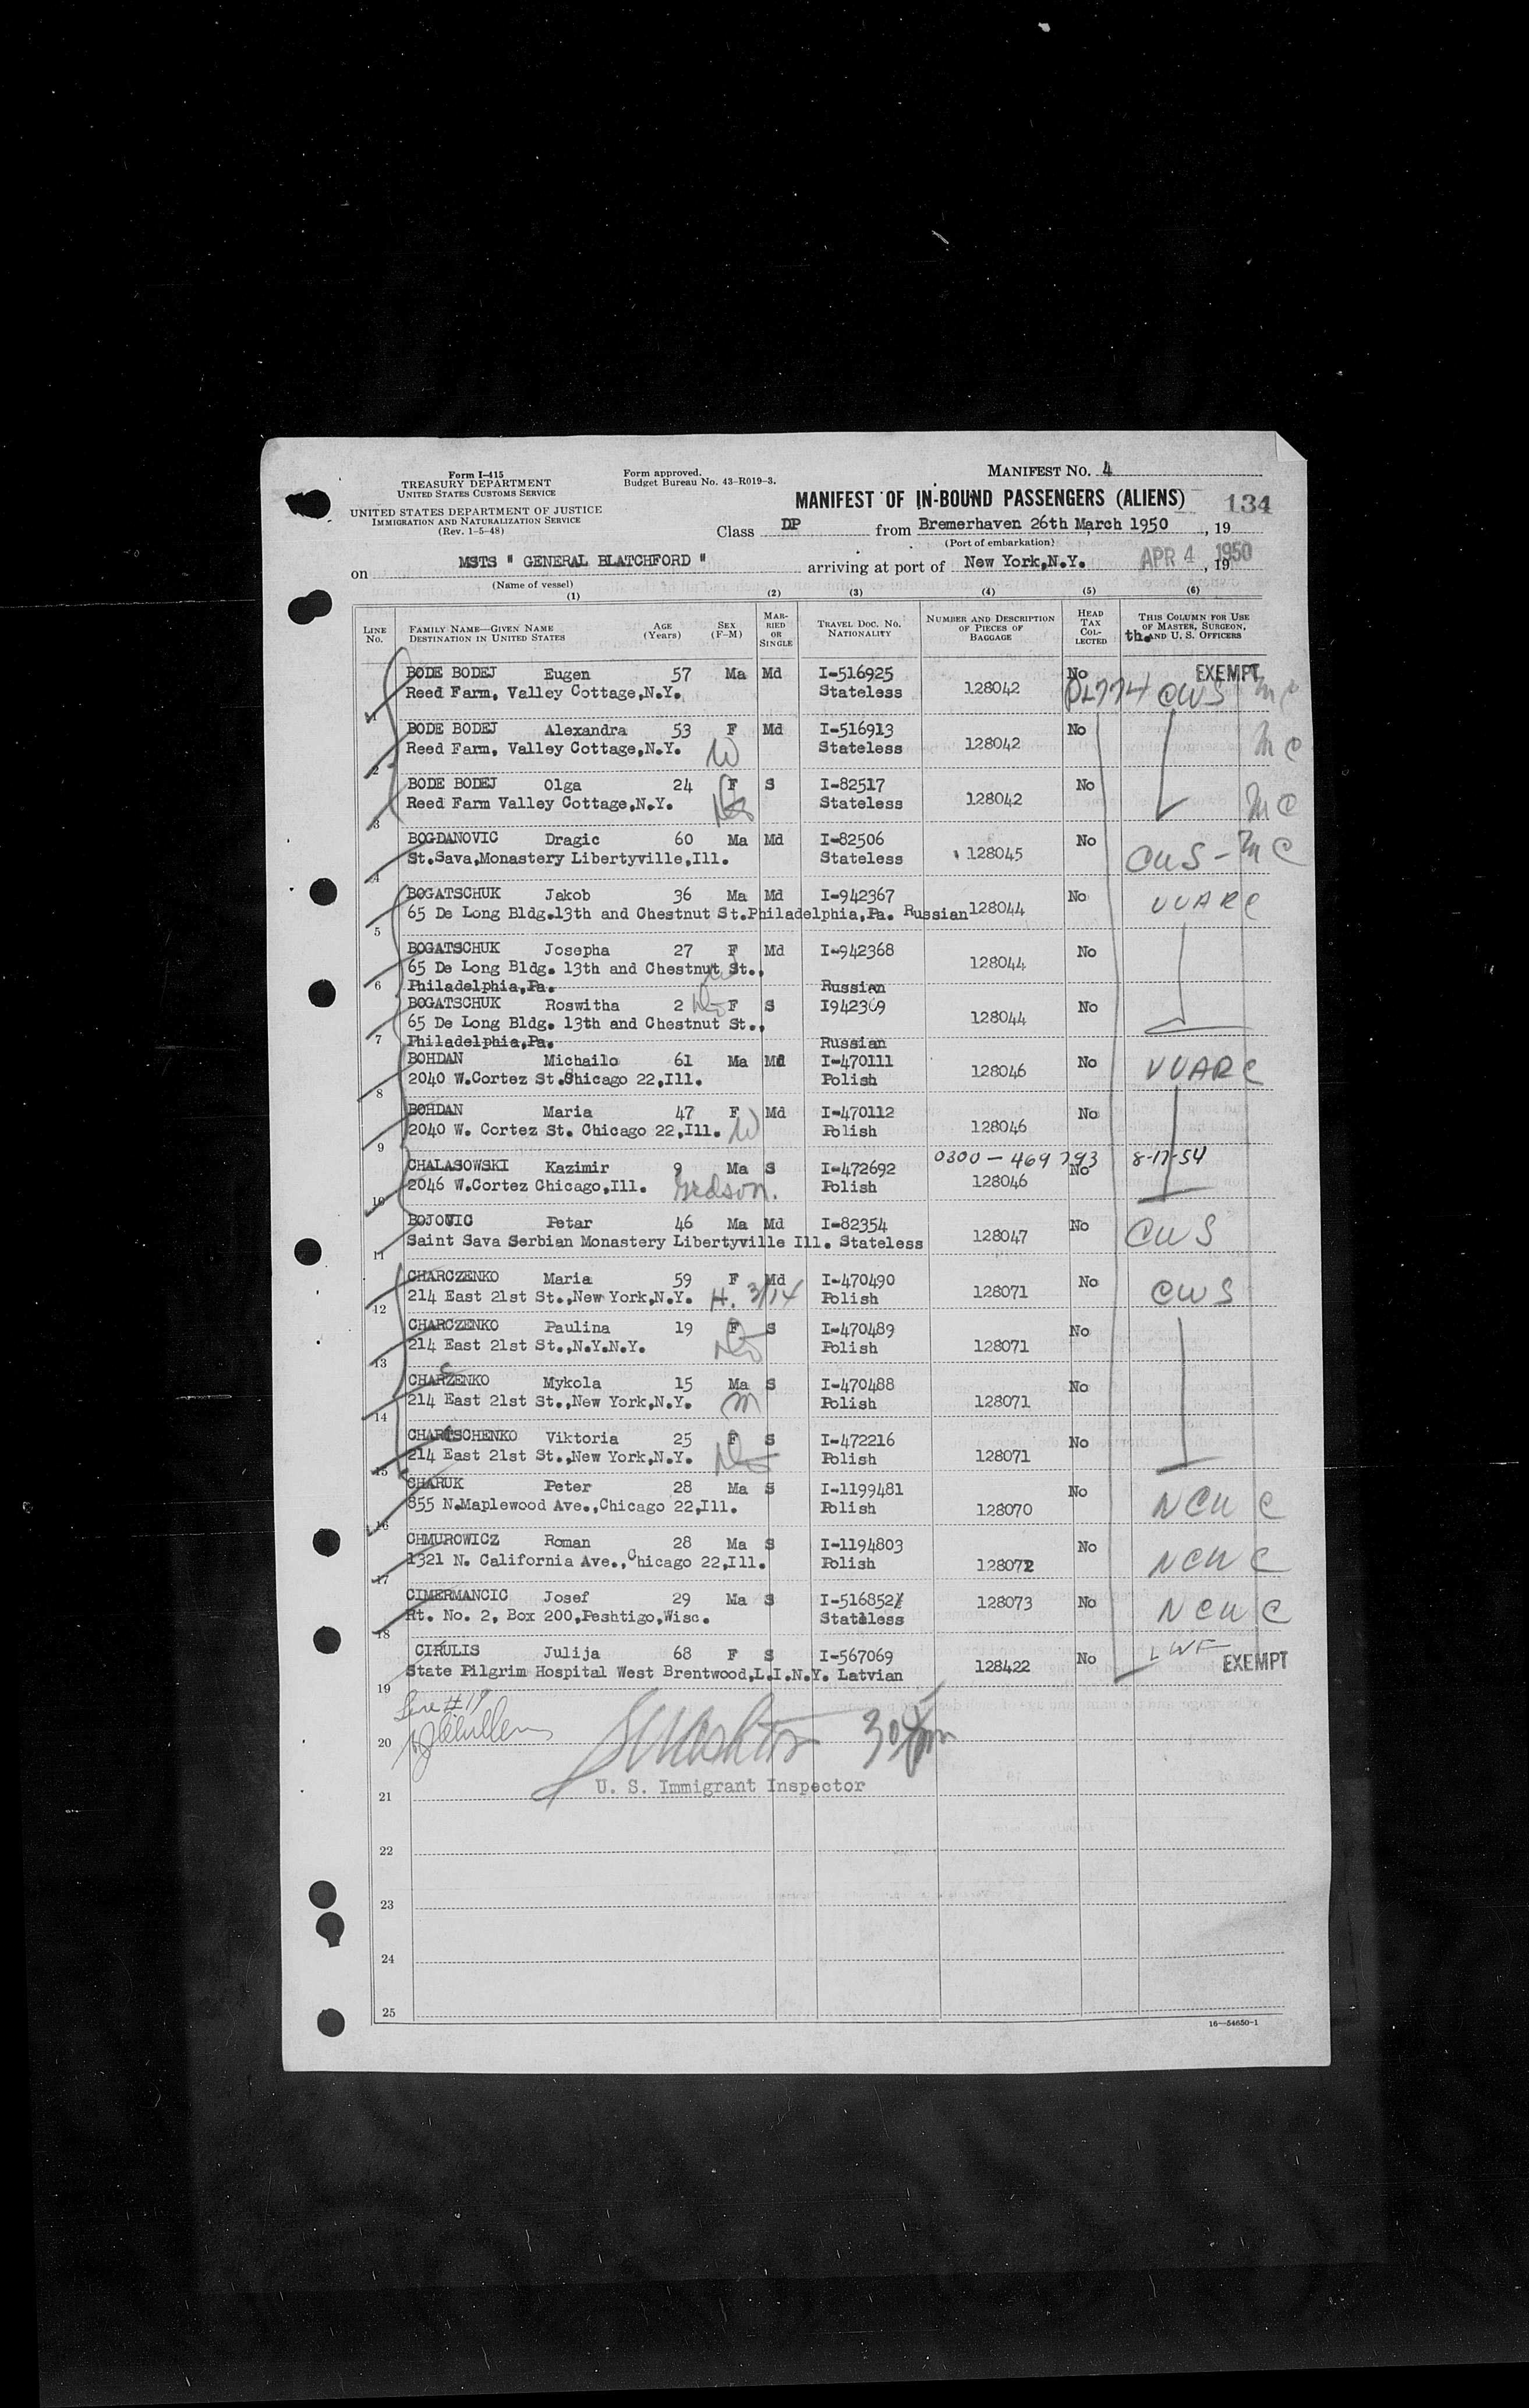 Form I-415
TREASURY DEPARTMENT
UNITED STATES CUSTOMS SERVICE
UNITED STATES DEPARTMENT OF JUSTICE
IMMIGRATION AND NATURALIZATION SERVICE
(Rev. 1-5-48)
Form approved.
Budget Bureau No. 43-R019-3.
MANIFEST NO. 4
MANIFEST OF IN-BOUND PASSENGERS (ALIENS) 134
Class DP from Bremerhaven 26th March 1950, 19
(Port of embarkation)
on MSTS " GENERAL BLATCHFORD " arriving at port of New York,N.Y. APR 4 1950, 19
(Name of vessel)
(1) (2) (3) (4) (5) (6)
LINE No. FAMILY NAME—GIVEN NAME DESTINATION IN UNITED STATES AGE (Years) SEX (F-M) MARRIED OR SINGLE TRAVEL DOC. NO. NATIONALITY NUMBER AND DESCRIPTION OF PIECES OF BAGGAGE HEAD TAX COLLECTED THIS COLUMN FOR USE OF MASTER, SURGEON, AND U. S. OFFICERS
th.
BODE BODEJ Eugen 57 Ma Md I-516925 No EXEMPT
Reed Farm, Valley Cottage,N.Y. Stateless 128042 CWS MC
1
BODE BODEJ Alexandra 53 F Md I-516913 No
Reed Farm, Valley Cottage,N.Y. W Stateless 128042 MC
2
BODE BODEJ Olga 24 F S I-82517 No
Reed Farm Valley Cottage,N.Y. Stateless 128042 MC
3
BOGDANOVIC Dragic 60 Ma Md I-82506 No
St.Sava,Monastery Libertyville,Ill. Stateless 128045 CWS - MC
4
BOGATSCHUK Jakob 36 Ma Md I-942367 No UUARC
65 De Long Bldg.13th and Chestnut St.Philadelphia,Pa. Russian 128044
5
BOGATSCHUK Josepha 27 F Md I-942368 No
65 De Long Bldg. 13th and Chestnut St., 128044
6 Philadelphia,Pa. Russian
BOGATSCHUK Roswitha 2 F S I942369 No
65 De Long Bldg. 13th and Chestnut St., 128044
7 Philadelphia,Pa. Russian
BOHDAN Michailo 61 Ma Md I-470111 No UUARC
2040 W.Cortez St.Chicago 22,Ill. Polish 128046
8
BOHDAN Maria 47 F Md I-470112 No
2040 W. Cortez St. Chicago 22,Ill. W Polish 128046
9 0300-469793 8-17-54
CHALASOWSKI Kazimir 9 Ma S I-472692 No
2046 W.Cortez Chicago,Ill. Grdson. Polish 128046
10
BOJOVIC Petar 46 Ma Md I-82354 No CWS
Saint Sava Serbian Monastery Libertyville Ill. Stateless 128047
11
CHARCZENKO Maria 59 F Md I-470490 No
214 East 21st St.,New York,N.Y. H. 3/14 Polish 128071 CWS
12
CHARCZENKO Paulina 19 F S I-470489 No
214 East 21st St.,N.Y.N.Y. Polish 128071
13
CHARZENKO Mykola 15 Ma S I-470488 No
214 East 21st St.,New York,N.Y. Polish 128071
14
CHARTSCHENKO Viktoria 25 F S I-472216 No
214 East 21st St.,New York,N.Y. Polish 128071
15
CHARUK Peter 28 Ma S I-1199481 No
855 N.Maplewood Ave.,Chicago 22,Ill. Polish 128070 NCWC
16
CHMUROWICZ Roman 28 Ma S I-1194803 No
1321 N. California Ave.,Chicago 22,Ill. Polish 128072 NCWC
17
CIMERMANCIC Josef 29 Ma S I-516852 128073 No
Rt. No. 2, Box 200,Peshtigo,Wisc. Stateless NCWC
18
CIRULIS Julija 68 F S I-567069 No LWF
State Pilgrim Hospital West Brentwood,L.I.N.Y. Latvian 128422 EXEMPT
19
Line #19
20
U. S. Immigrant Inspector
21
22
23
24
25
16—54650-1